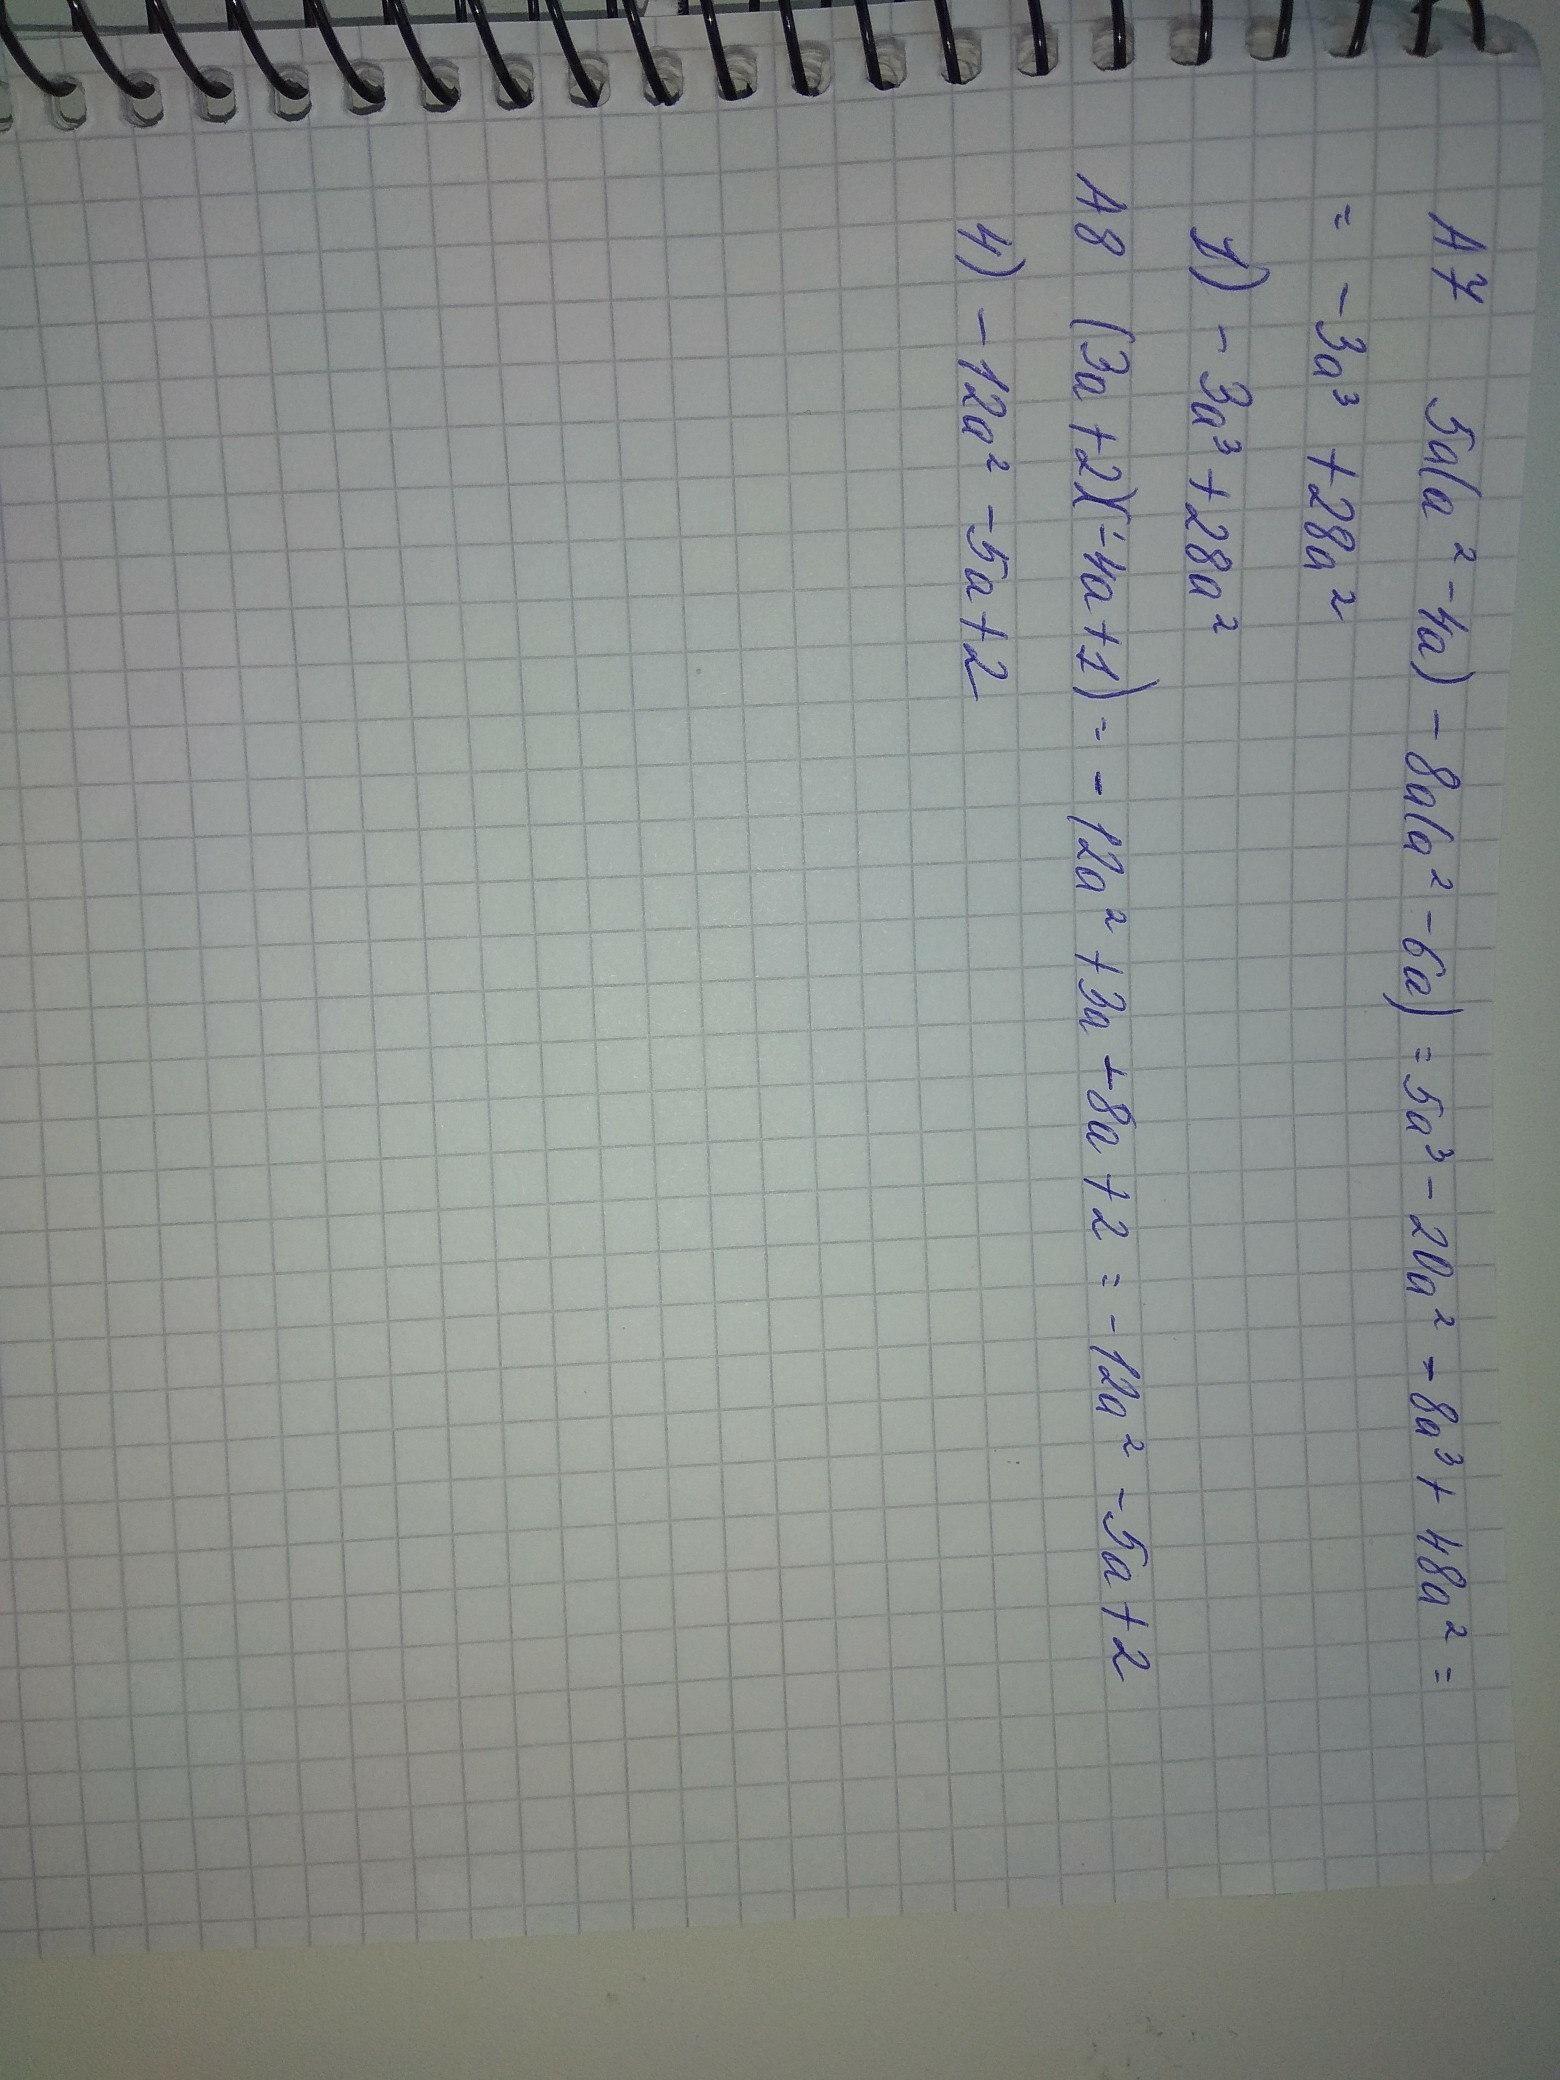 А7 5a(a² - 4a) - 8a(a² - 6a) = 5a³ - 20a² - 8a³ + 48a² =
= -3a³ + 28a²
1) -3a³ + 28a²
А8 (3a + 2)(-4a + 1) = -12a² + 3a + 8a + 2 = -12a² - 5a + 2
4) -12a² - 5a + 2